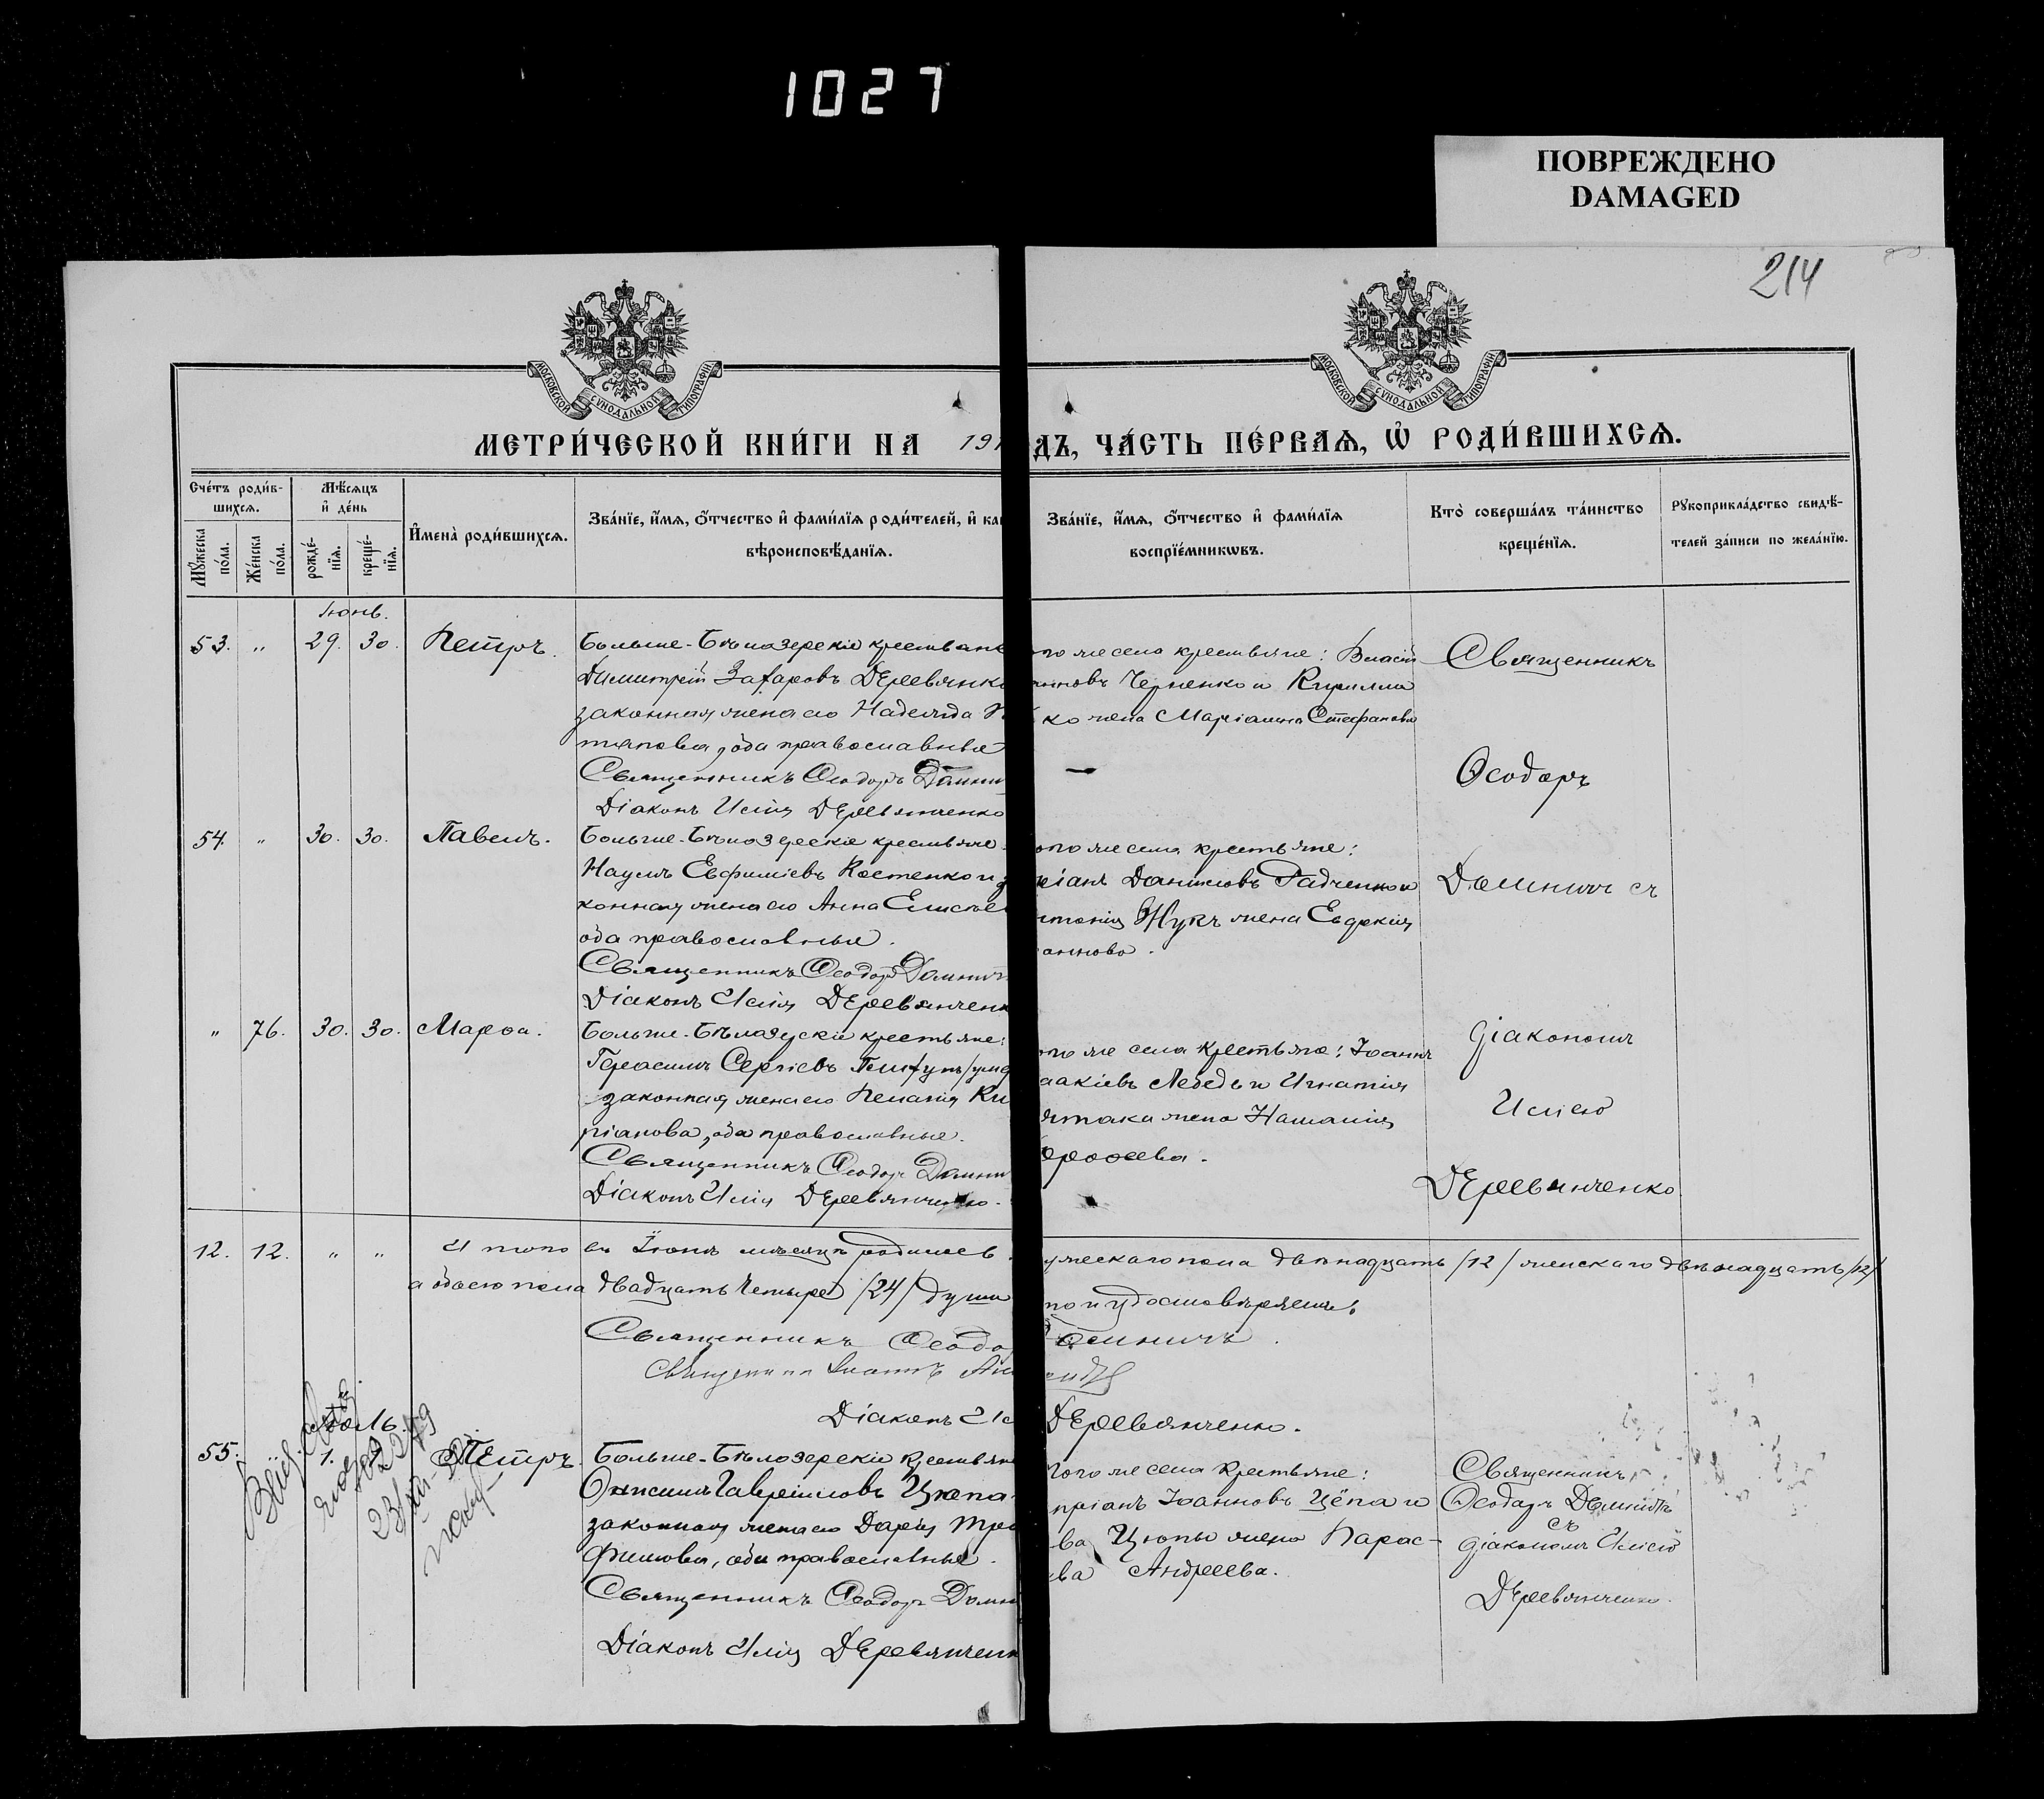 1027
ПОВРЕЖДЕНО
DAMAGED
214
МОСКОВСКОЙ СѴНОДАЛЬНОЙ ТИПОГРАФІИ
МОСКОВСКОЙ СѴНОДАЛЬНОЙ ТИПОГРАФІИ
МЕТРИ́ЧЕСКОЙ КНИ́ГИ НА 191
ДЪ, ЧА́СТЬ ПЕ́РВАѦ, Ѡ҆ РОДИ́ВШИХСѦ.
Сче́тъ роди́в-
шихсѧ.
Мѣ́сѧцъ
и҆ де́нь
Мꙋ́жеска по́ла.
Же́нска по́ла.
рожде́-
нїѧ.
креще́-
нїѧ.
И҆мена̀ роди́вшихсѧ.
Зва́нїе, и҆́мѧ, ѻ҆́тчество и҆ фамѝлїѧ роди́телей, и҆ ка
вѣроисповѣ́данїѧ.
Зва́нїе, и҆́мѧ, ѻ҆́тчество и҆ фамѝлїѧ
воспрїе́мникѡвъ.
Кто̀ соверша́лъ та́инство
креще́нїѧ.
Рꙋкоприкла́дство свидѣ́-
телей за́писи по жела́нїю.
Іюнь.
53. „ 29. 30. Петръ.
Больше-Бѣлозерскіе крестьяне
Димитрій Захаровъ Деревянко
законная жена его Надежда
оба православные
Священникъ Ѳеодоръ Домни
Діаконъ Илія Деревянченко
го же села крестьяне: Власій
Черненко и Кирилла
ко жена Маріамна Стефанова
Священникъ
Ѳеодоръ
54. „ 30. 30. Павелъ.
Больше-Бѣлозерскіе крестьяне
Наумъ Евфиміевъ Костенко и за
конная жена его Анна Елисѣе
оба православные.
Священникъ Ѳеодоръ Домнич
Діаконъ Илія Деревянченк
ого же села крестьяне:
ріанъ Даниловъ Радченко и
нтонія Жукъ жена Евдокія
аннова.
Домничъ съ
„ 76. 30. 30. Марѳа.
Больше-Бѣлозерскіе крестьяне:
Герасимъ Сергіевъ
законная жена его Пелагія Ки
пріанова, оба православные.
Священникъ Ѳеодоръ Домни
Діаконъ Илія Деревянченко.
ого же села крестьяне: Іоаннъ
аакіевъ Лебедь и Игнатія
жена Наталія
ороѳеева.
Діакономъ
Иліею
Деревянченко
12. 12. „ „ Итого въ Іюнѣ мѣсяцѣ родилось
ужескаго пола двѣнадцать /12/ женскаго двѣнадцать /12/
а обоего пола двадцать четыре /24/ души
удостовѣряемъ:
Священникъ Ѳеодо
Домничъ.
Священникъ Іоаннъ
Діаконъ Ил
Деревянченко.
Іюль.
55. „ 1. Петръ.
Больше-Бѣлозерскіе крестьяне
Онисимъ Гавріиловъ Цюпа
законная жена его Дарія Тро
фимова, оба православные.
Священникъ Ѳеодоръ Домни
Діаконъ Илія Деревянченк
того же села крестьяне:
пріанъ Іоанновъ Цёпа и
ва Цюпы жена Парас-
ева Андреева.
Священникъ
Ѳеодоръ Домничъ
съ
діакономъ Иліею
Деревянченко.